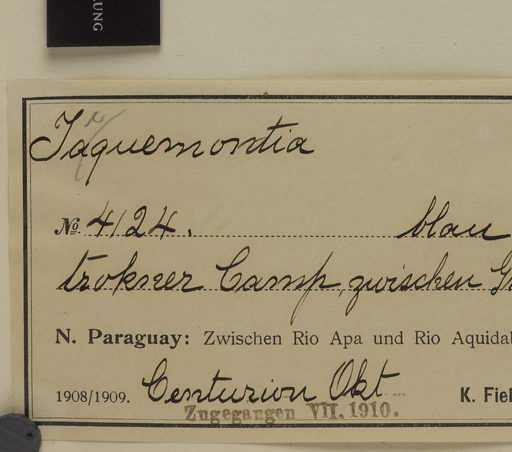 LUNG
Jaquemontia
№ 4124. blau
trokner Camp, zwischen
N. Paraguay: Zwischen Rio Apa und Rio Aquidab
1908/1909. Centurion Okt K. Fie
Zugegangen VII. 1910.